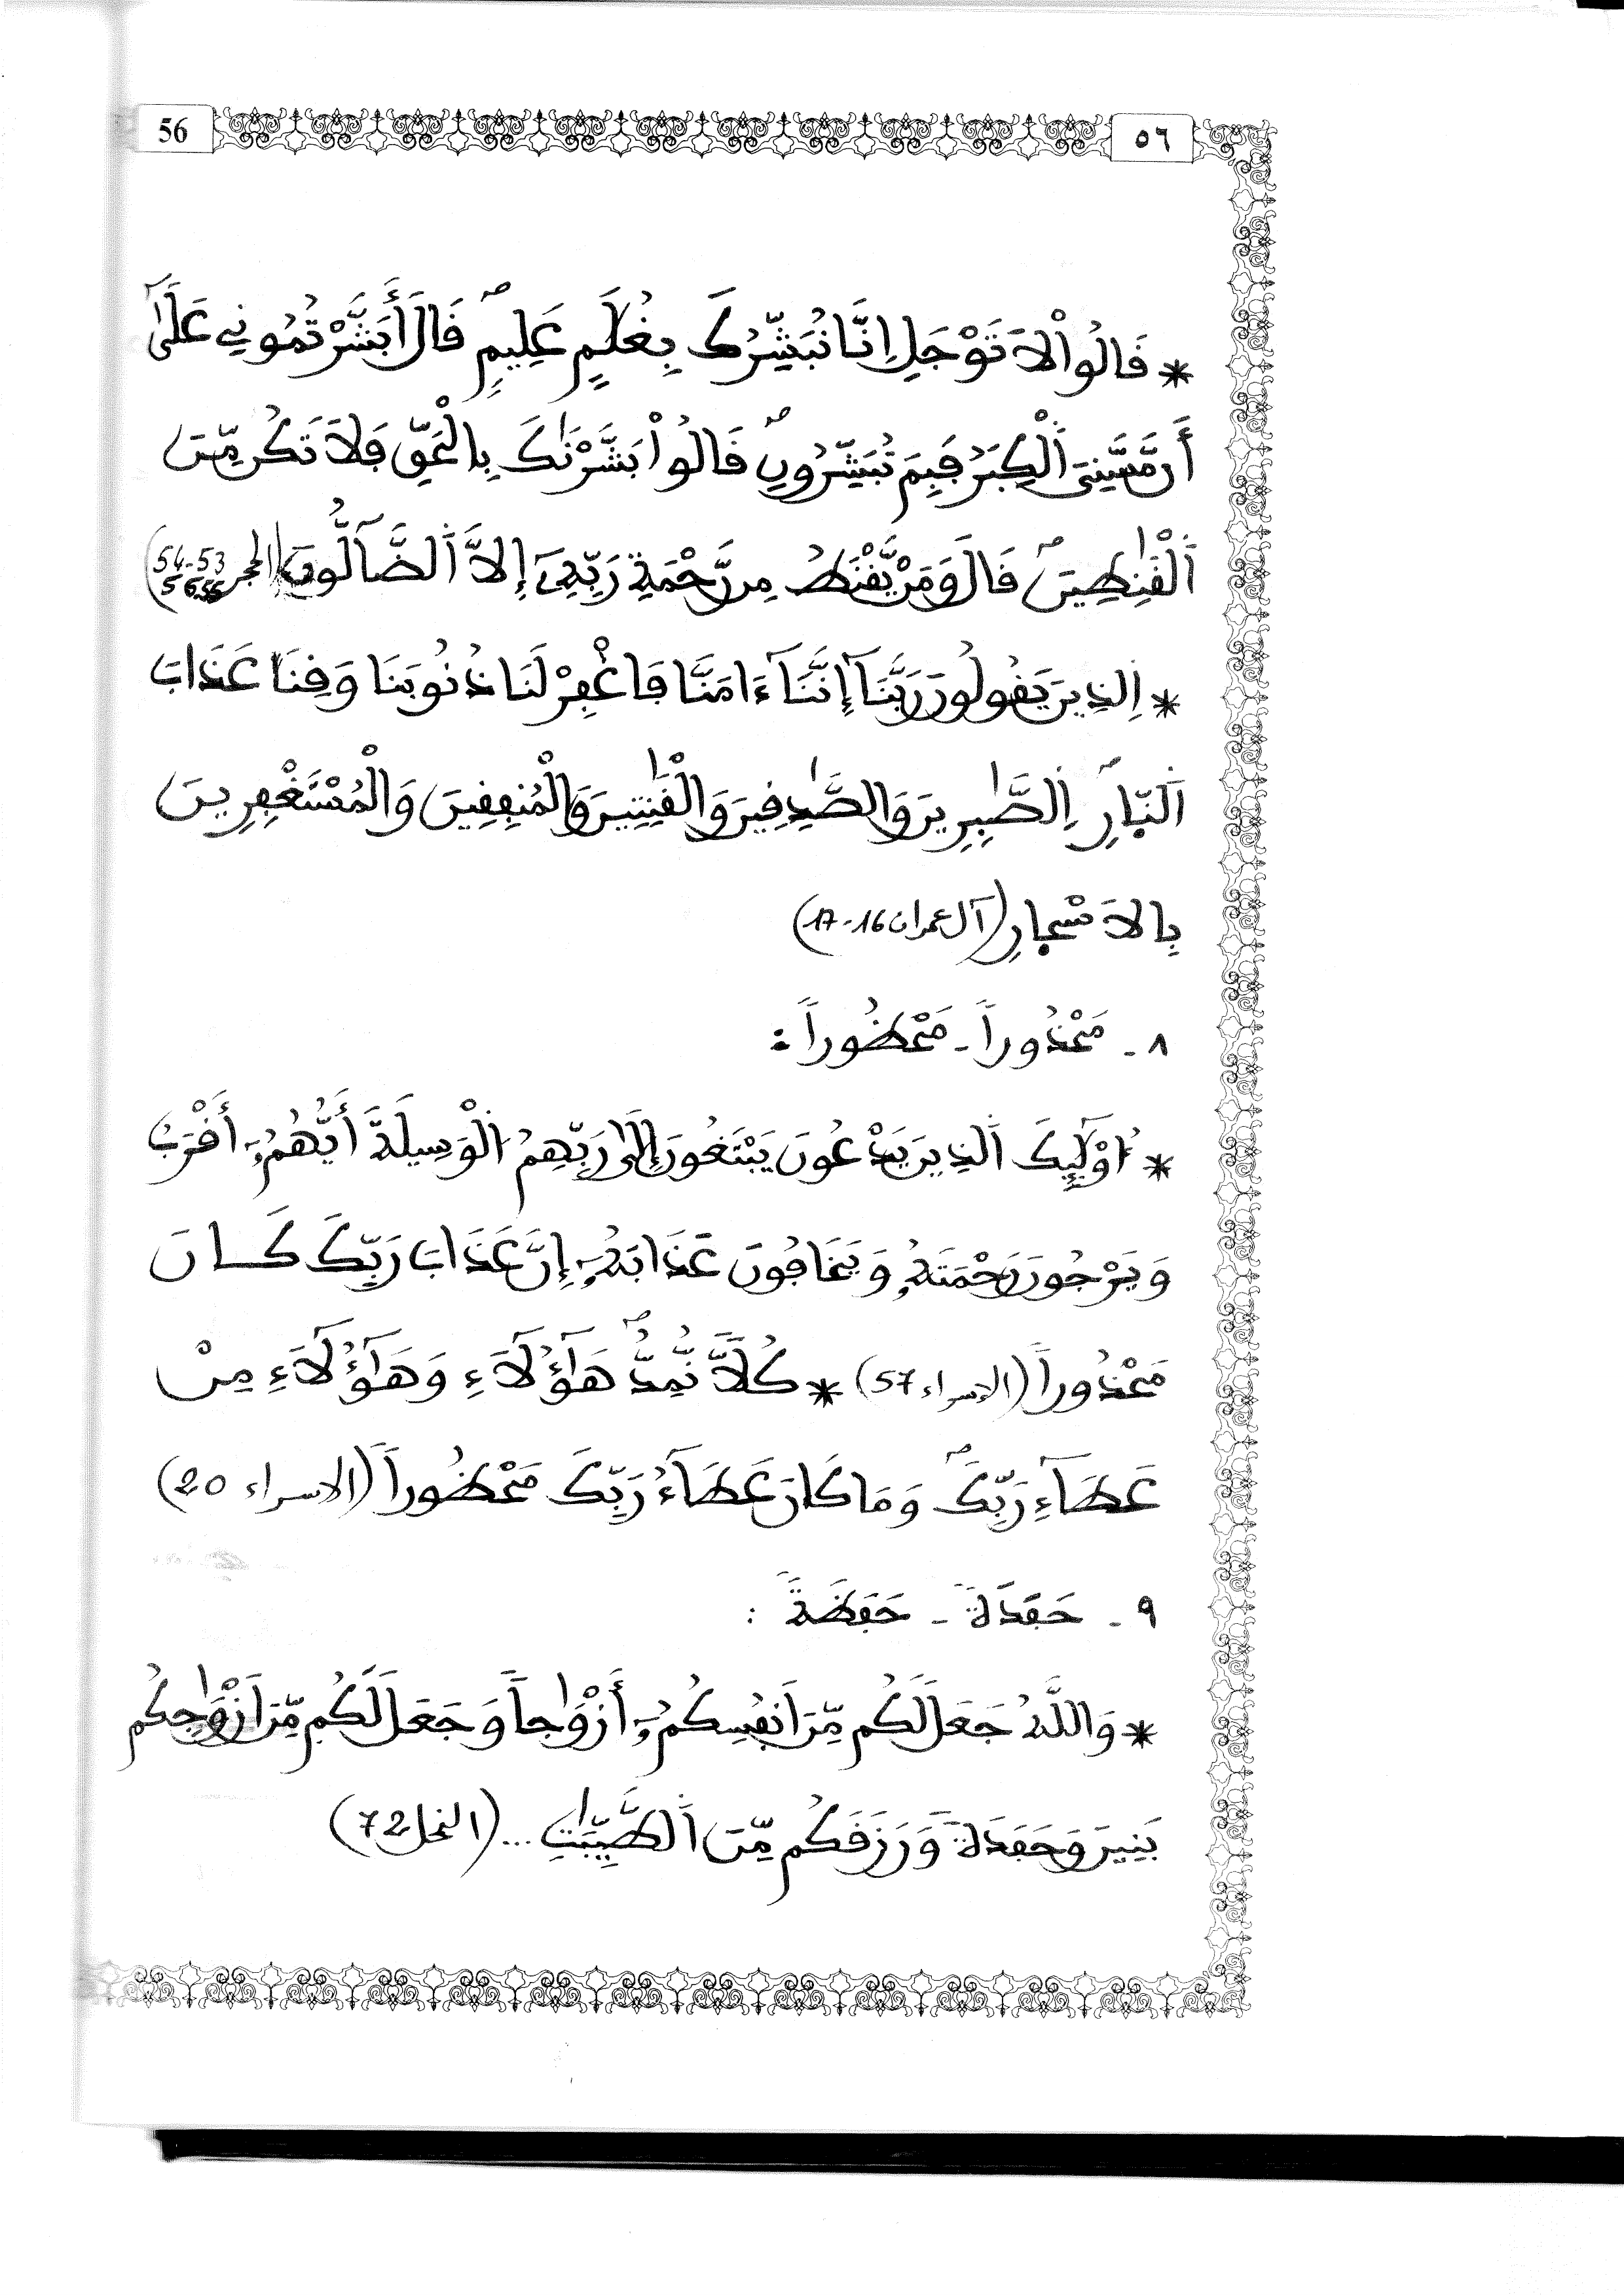 56 ٥٦
* قَالُواْ لَا تَوْجَلِ اِنَّا نُبَشِّرُكَ بِغُلَٰمٍ عَلِيمٍ قَالَ أَبَشَّرْتُمُونِي عَلَىٰٓ
أَن مَّسَّنِيَ اَلْكِبَرُ فَبِمَ تُبَشِّرُونِ قَالُواْ بَشَّرْنَٰكَ بِالْحَقِّ فَلَا تَكُن مِّنَ
اَلْقَٰنِطِينَ قَالَ وَمَنْ يَّقْنَطُ مِن رَّحْمَةِ رَبِّهِۦٓ إِلَّا اَلضَّآلُّونَ (الحجر 53-54
56 55)
* اِلذِينَ يَقُولُونَ رَبَّنَآ إِنَّنَآ ءَامَنَّا فَاغْفِرْ لَنَا ذُنُوبَنَا وَقِنَا عَذَابَ
اَلنّارِ اِلصَّٰبِرِينَ وَالصَّٰدِقِينَ وَالْقَٰنِتِينَ وَالْمُنفِقِينَ وَالْمُسْتَغْفِرِينَ
بِالَاسْحارِ (آل عمران 16-17)
٨ - مَحْذُوراً - مَحْظُوراً :
* اُوْلَٰٓئِكَ اَلذِينَ يَدْعُونَ يَبْتَغُونَ إِلَىٰ رَبِّهِمُ اَلْوَسِيلَةَ أَيُّهُمُۥٓ أَقْرَبُ
وَيَرْجُونَ رَحْمَتَهُۥ وَيَخَافُونَ عَذَابَهُۥٓ إِنَّ عَذَابَ رَبِّكَ كَانَ
مَحْذُوراً (الإسراء 57) * كُلّاً نُّمِدُّ هَٰٓؤُلَآءِ وَهَٰٓؤُلَآءِ مِنْ
عَطَآءِ رَبِّكَ وَمَا كَانَ عَطَآءُ رَبِّكَ مَحْظُوراً (الاسراء 20)
٩ - حَفَدَةً - حَفَظَةً :
* وَاللَّهُ جَعَلَ لَكُم مِّنَ اَنفُسِكُمُۥٓ أَزْوَٰجاً وَجَعَلَ لَكُم مِّنَ اَزْوَٰجِكُم
بَنِينَ وَحَفَدَةً وَرَزَقَكُم مِّنَ اَلطَّيِّبَٰتِ ... (النحل 72)